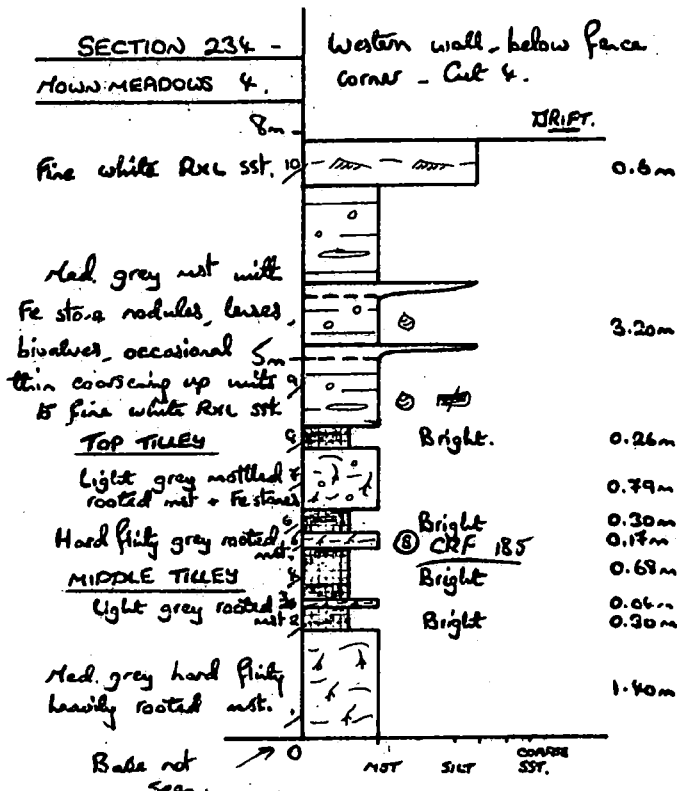 SECTION 234 -
HOWN MEADOWS 4.
Western wall - below fence
corner - Cut 4.
8m
DRIFT.
Fine white RXL sst.
10
0.6m
Med. grey mst with
Fe stone nodules, lenses,
bivalves, occasional
5m
thin coarsening up units
9
to fine white RXL sst
3.20m
TOP TILLEY
8
Bright.
0.26m
Light grey mottled
7
rooted mst + Fe stones
0.79m
6
Bright
0.30m
Hard flinty grey rooted
mst.
5
⑧ CRF 185
0.17m
MIDDLE TILLEY
4
Bright
0.68m
Light grey rooted
mst
3
0.04m
2
Bright
0.30m
Med. grey hard flinty
heavily rooted mst.
1
1.40m
Base not
seen.
0
MST
SILT
COARSE
SST.